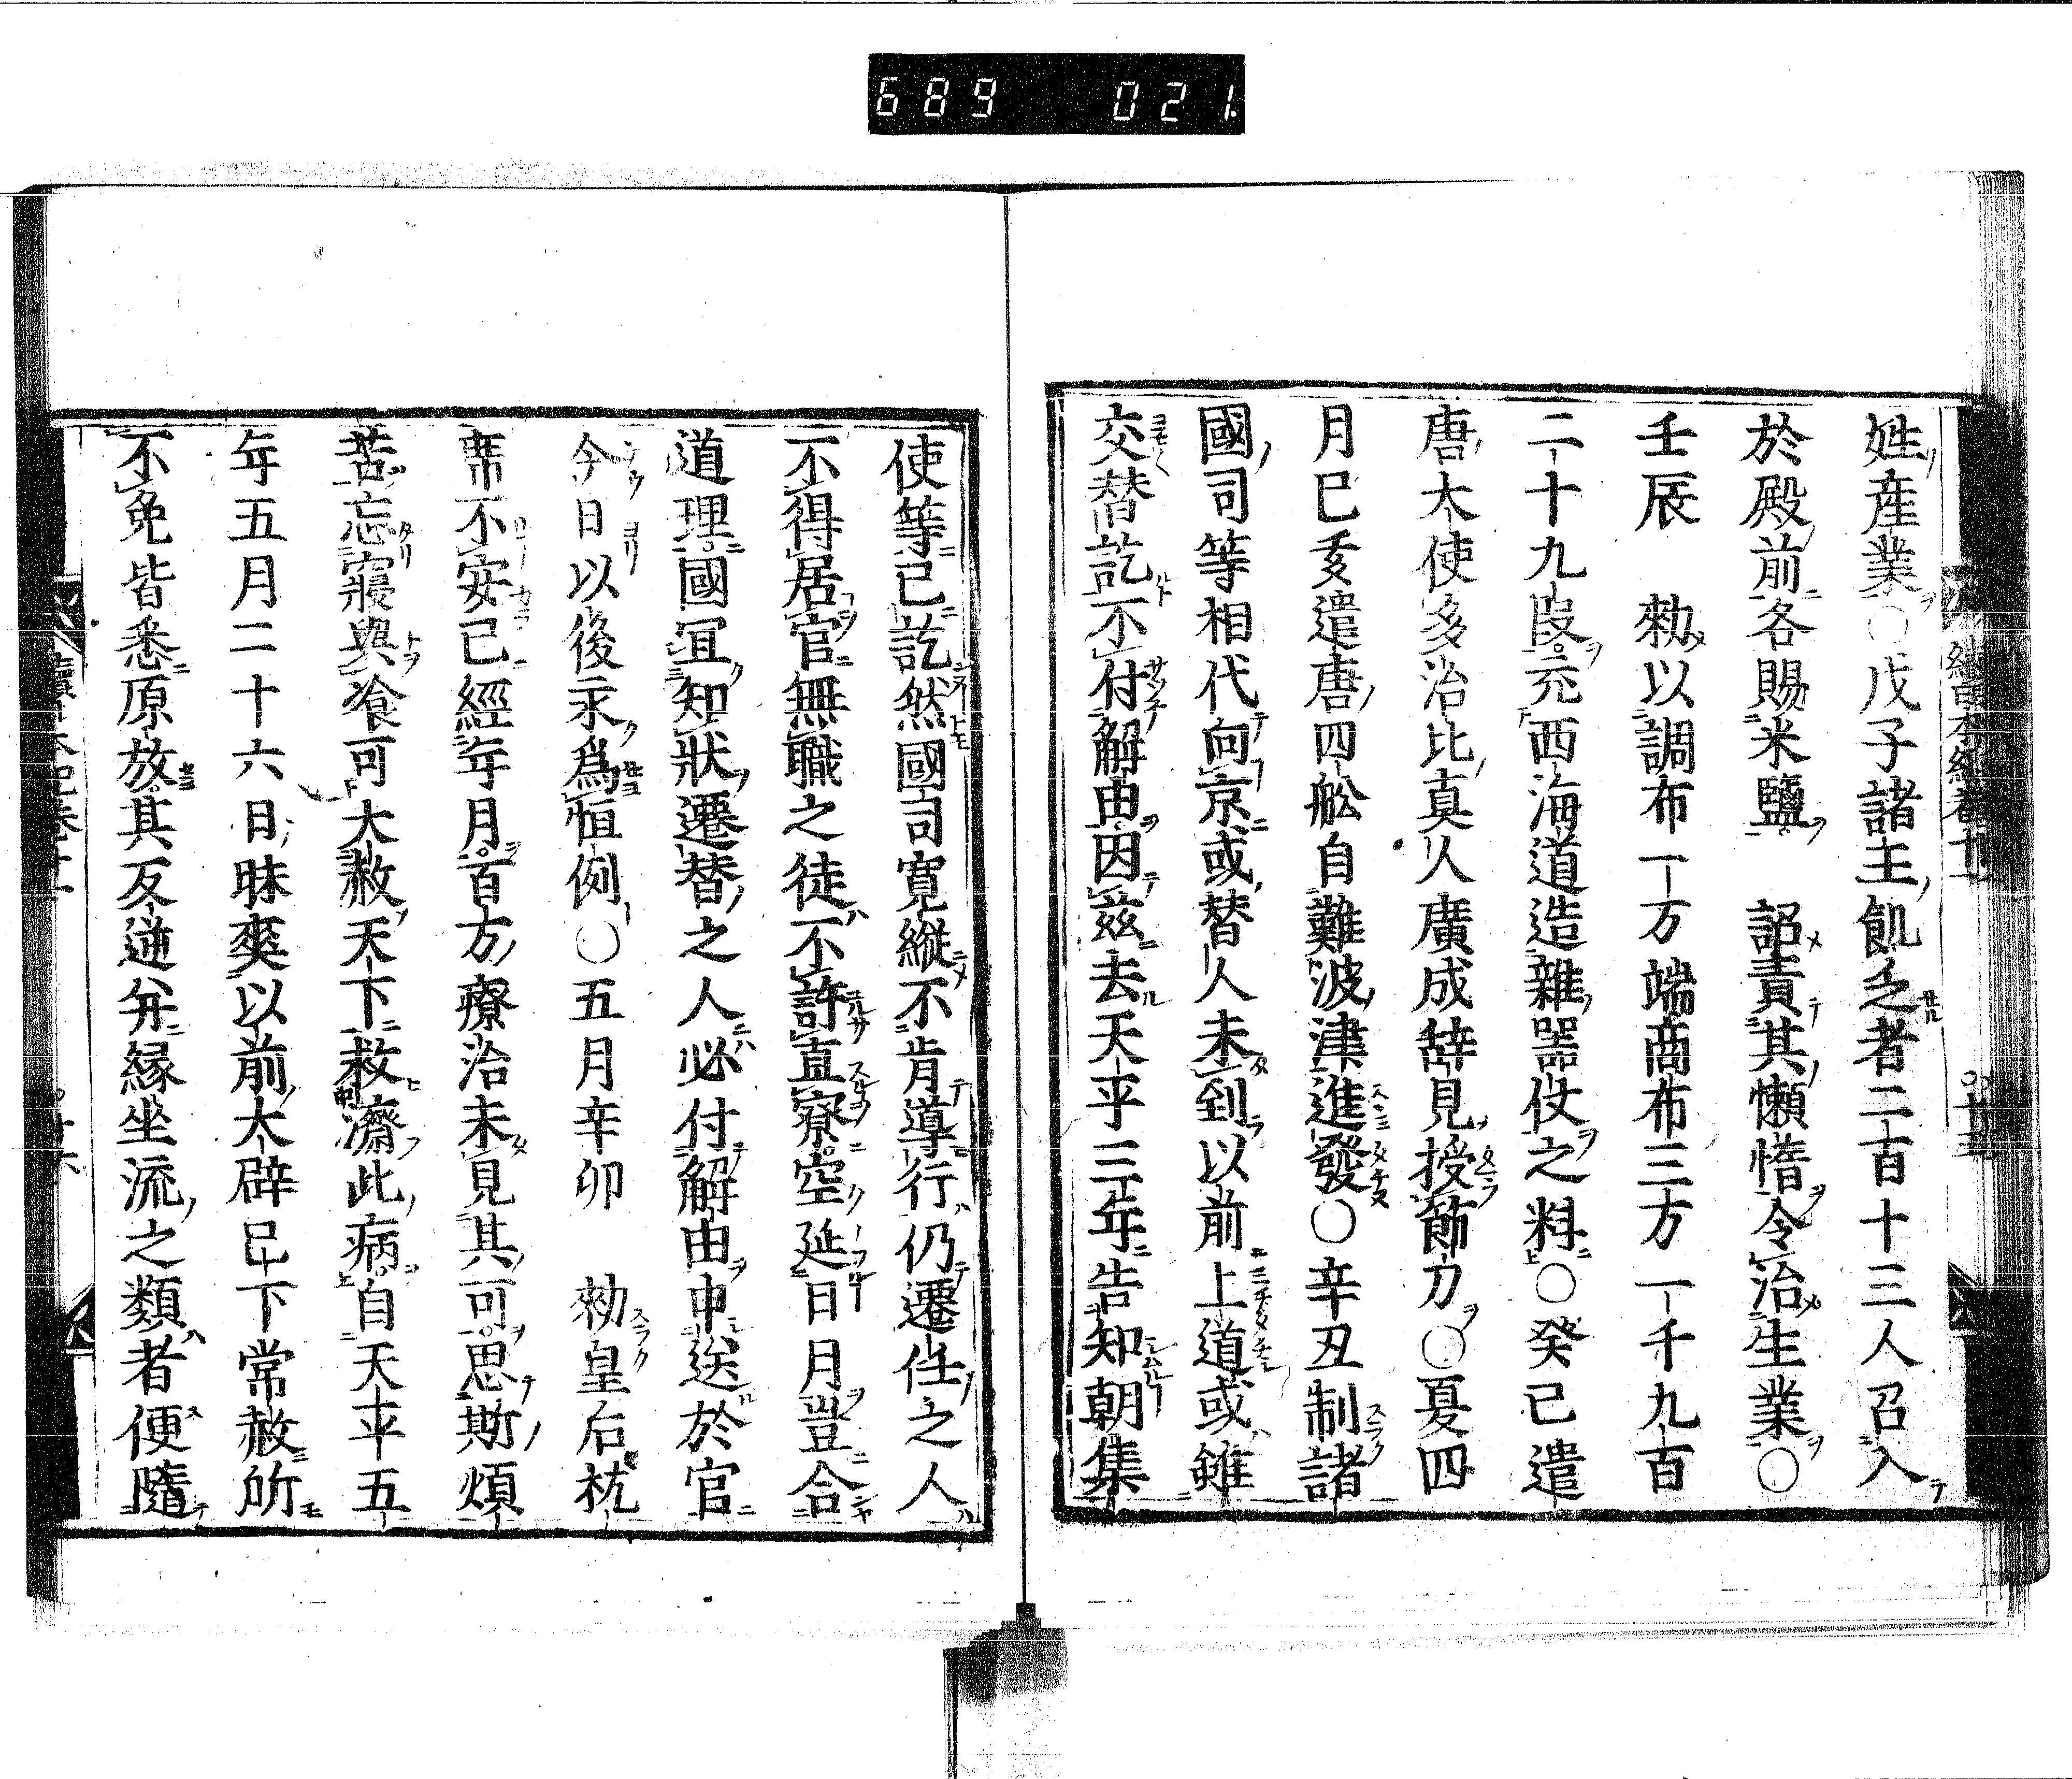 689 021
姓産業○戊子諸王飢乏者二百十三人召入
於殿前各賜米鹽　詔責其懶惰令治生業○
壬辰　勑以調布一万端商布三万一千九百
二十九段充西海道造雜器仗之料○癸巳遣
唐大使多治比真人廣成辞見授節刀○夏四
月己亥遣唐四舩自難波津進發○辛丑制諸
國司等相代向京或替人未到以前上道或雖
交替訖不付解由因茲去天平三年告知朝集
使等已訖然國司寛縱不肯導行仍遷任之人
不得居官無職之徒不許直寮空延日月豈合
道理國冝知狀遷替之人必付解由申送於官
今日以後永爲恒例○五月辛卯　勑皇后枕
席不安已經年月百方療治未見其可思斯煩
苦忘寢與飡可大赦天下救濟此病自天平五
年五月二十六日昧爽以前大辟已下常赦所
不免皆悉原放其反逆并縁坐流之類者便隨